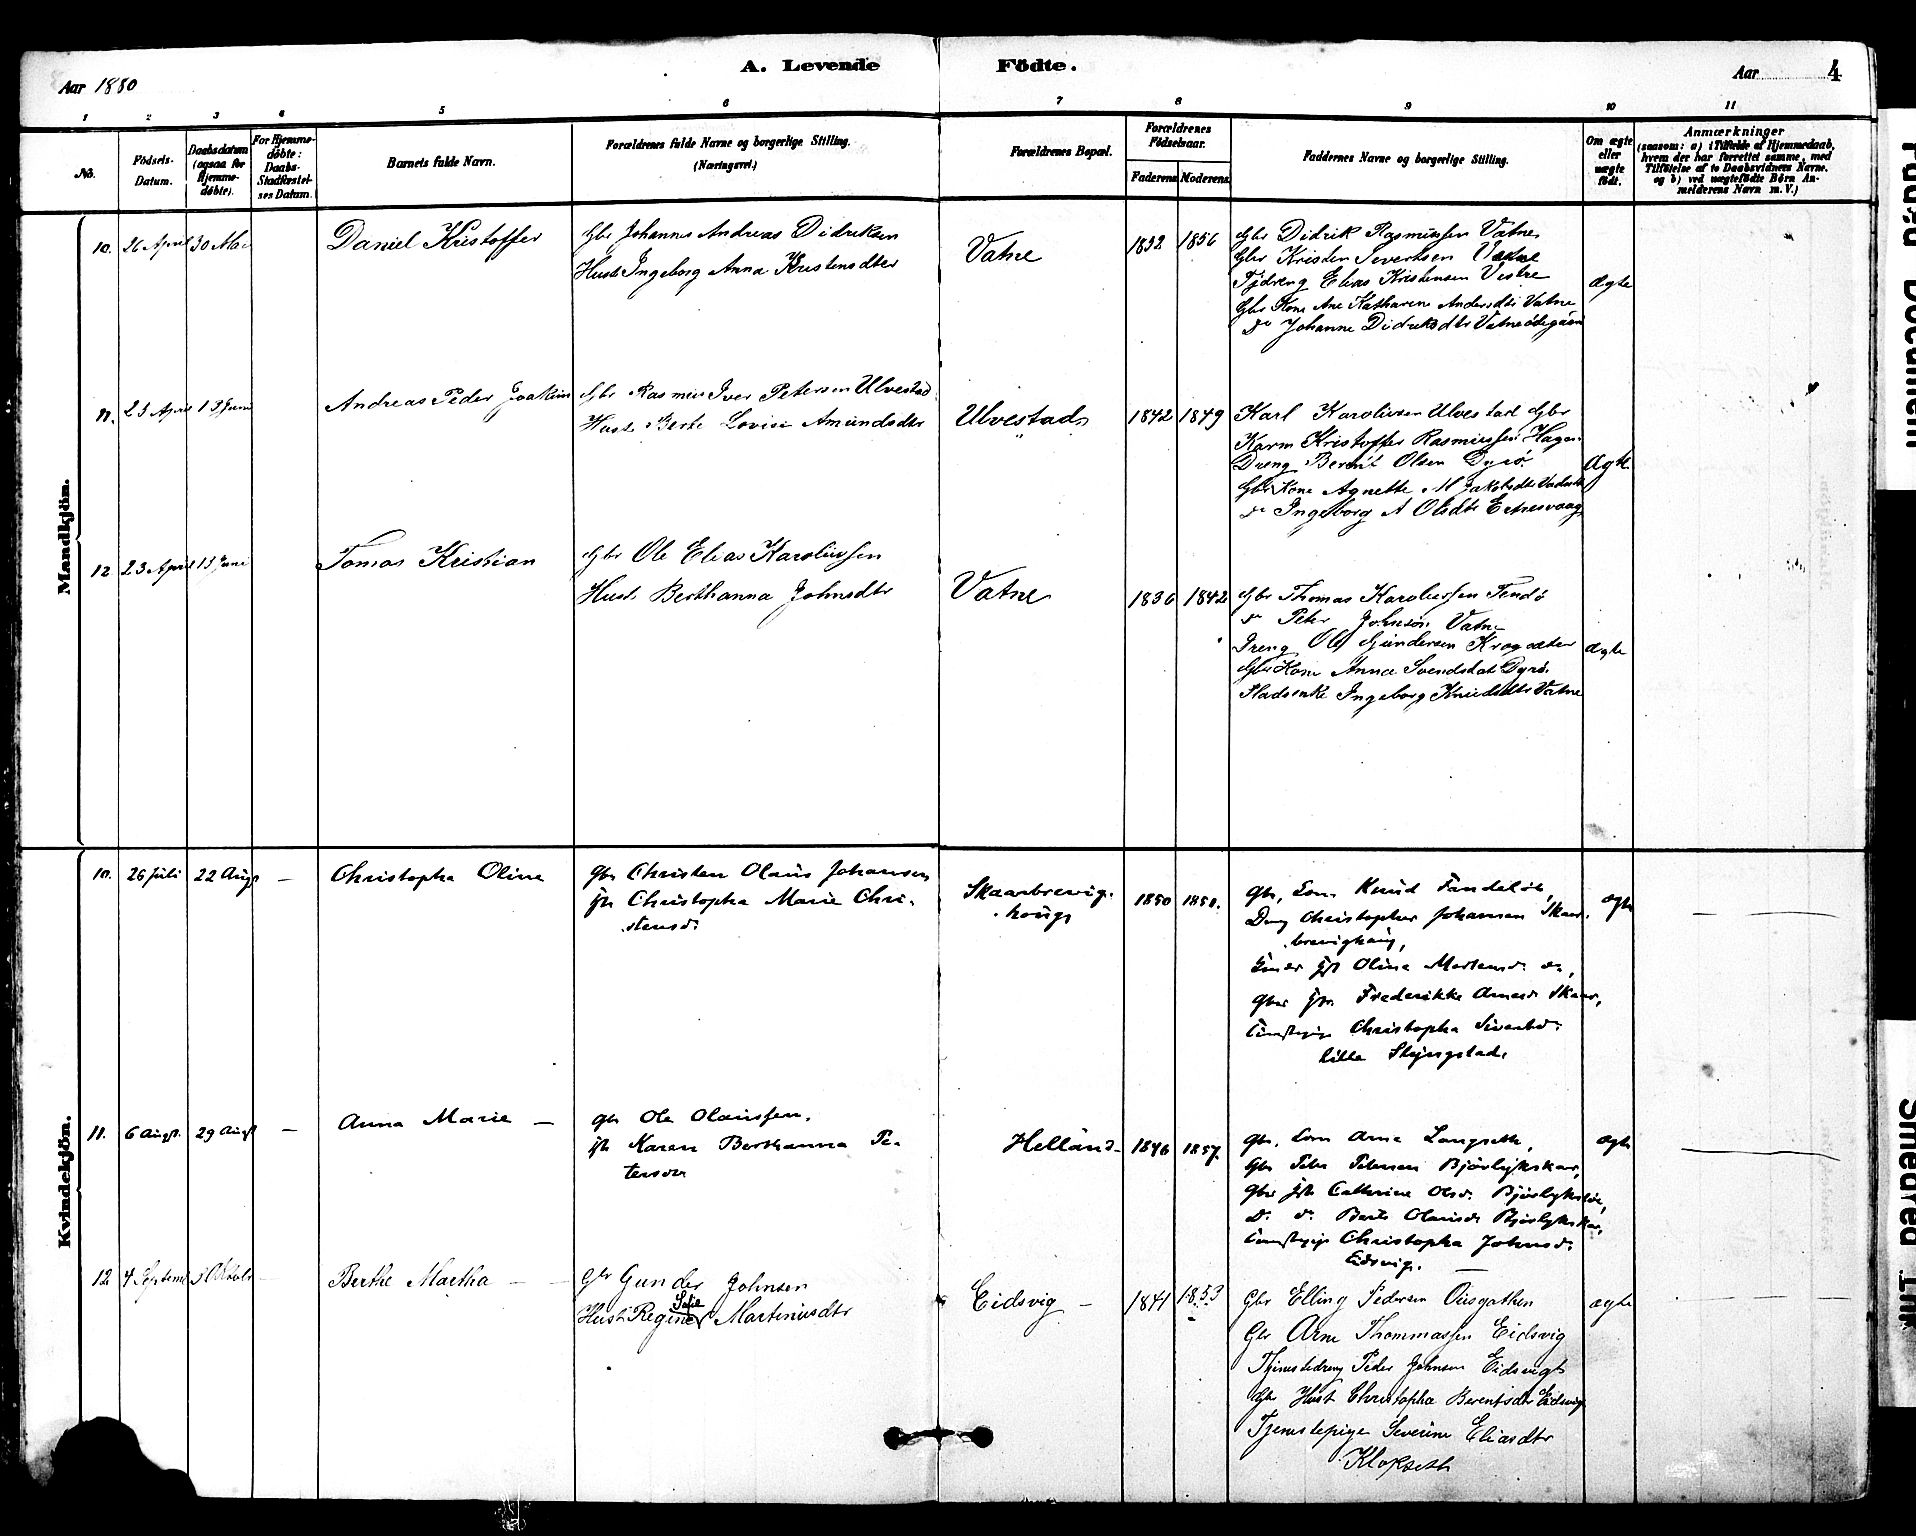 Aar 1880
A. Levende Födte.
Aar 4
1 2 3 4 5 6 7 8 9 10 11
No.
Födsels-Datum.
Daabsdatum (ogsaa for Hjemmedöbte).
For Hjemmedöbte: Daabs-Stadfæstelses Datum.
Barnets fulde Navn.
Forældrenes fulde Navne og borgerlige Stilling. (Næringsvei.)
Forældrenes Bopæl.
Forældrenes Födselsaar.
Faderens Moderens
Faddernes Navne og borgerlige Stilling.
Om ægte eller uægte født.
Anmærkninger
(saasom: a) i Tilfælde af Hjemmedaab, hvem der har forrettet samme, med Tilföielse af to Daabsvidners Navne, og b) ved uægtefödte Börn Anmelderens Navn m. V.)
Mandkjön.
10. 26 April 30 Mai
Daniel Kristoffer
Gbr Johannes Andreas Didriksen
Hust Ingeborg Anna Kristensdtr
Vatne
1832 1856
Gbr Didrik Rasmussen Vatne
Gbr Kristen Severtsen Vatne
Tjdreng Elias Kristensen Vestre
Gbr Kone Ane Katharine Andersdtr Vatne
do Johanne Didriksdtr Vatneødegaard
ægte
11. 23 April 13 Juni
Andreas Peder Joakim
Gbr Rasmus Iver Petersen Ulvestad
Hust Berte Lovise Amundsdtr
Ulvestad
1842 1849
Karl Karoliussen Ulvestad Gbr
Karm Kristoffer Rasmussen Hagen
Dreng Bernt Olsen Dyrø
Gbr Kone Agnette M Jakobsdtr
do Ingeborg A Olsdtr Eidesvaag
ægte
12 23 April 13 Juni
Tomas Kristian
Gbr Ole Elias Karoliussen
Hust Berthanna Johnsdtr
Vatne
1836 1842
Gbr Thomas Karoliussen Tendø
do Peter Johnson Vatne
Dreng Ole Gundersen Krogsæter
Gbr Kone Anna Svendsdtr Dyrø
Pladsenke Ingeborg Knudsdtr Vatne
ægte
Kvindekjön.
10. 26 Juli 22 Augs —
Christopha Oline
Gbr Christen Olaus Johansen
Christopha Marie Christensd.
Skaarbrevighaug
1850 1850.
Gbr, Søm Knud
Christopher Johansen Skaarbrevighaug,
Oline Mortensd. do,
Gbr Frederikke Arnesd. Skaar,
Christopha Sivertsd.
lille Slyngstad.
ægte — —
11. 6 Augt. 29 Augt —
Anna Marie —
Gbr Ole Olaussen.
Karen Berthanna Petersen
Helland
1846 1857.
Gbr. Arne Longseth,
Gbr Peter Petersen Bjørlykskar,
Gbr Cathrine Olsd. Bjørlykskar,
D. do. Berte Olausd. Bjørlykskar,
Christopha Johnsd.
Eidsvig.
ægte —
12 4 Septemb 3 Oktobr —
Berthe Martha —
Gbr Gunder Johnsen
Hust Regine Sofie Martinusdtr
Eidsvig —
1841 1853
Gbr Elling Pedersen
Gbr Arne Thommassen Eidsvig
Tjenestedreng Peder Johnsen Eidsvigt
Gbr Hust Christopha Berentsdtr Eidsvig
Tjenestepige Severine Eliasdtr
Klokseth
ægte